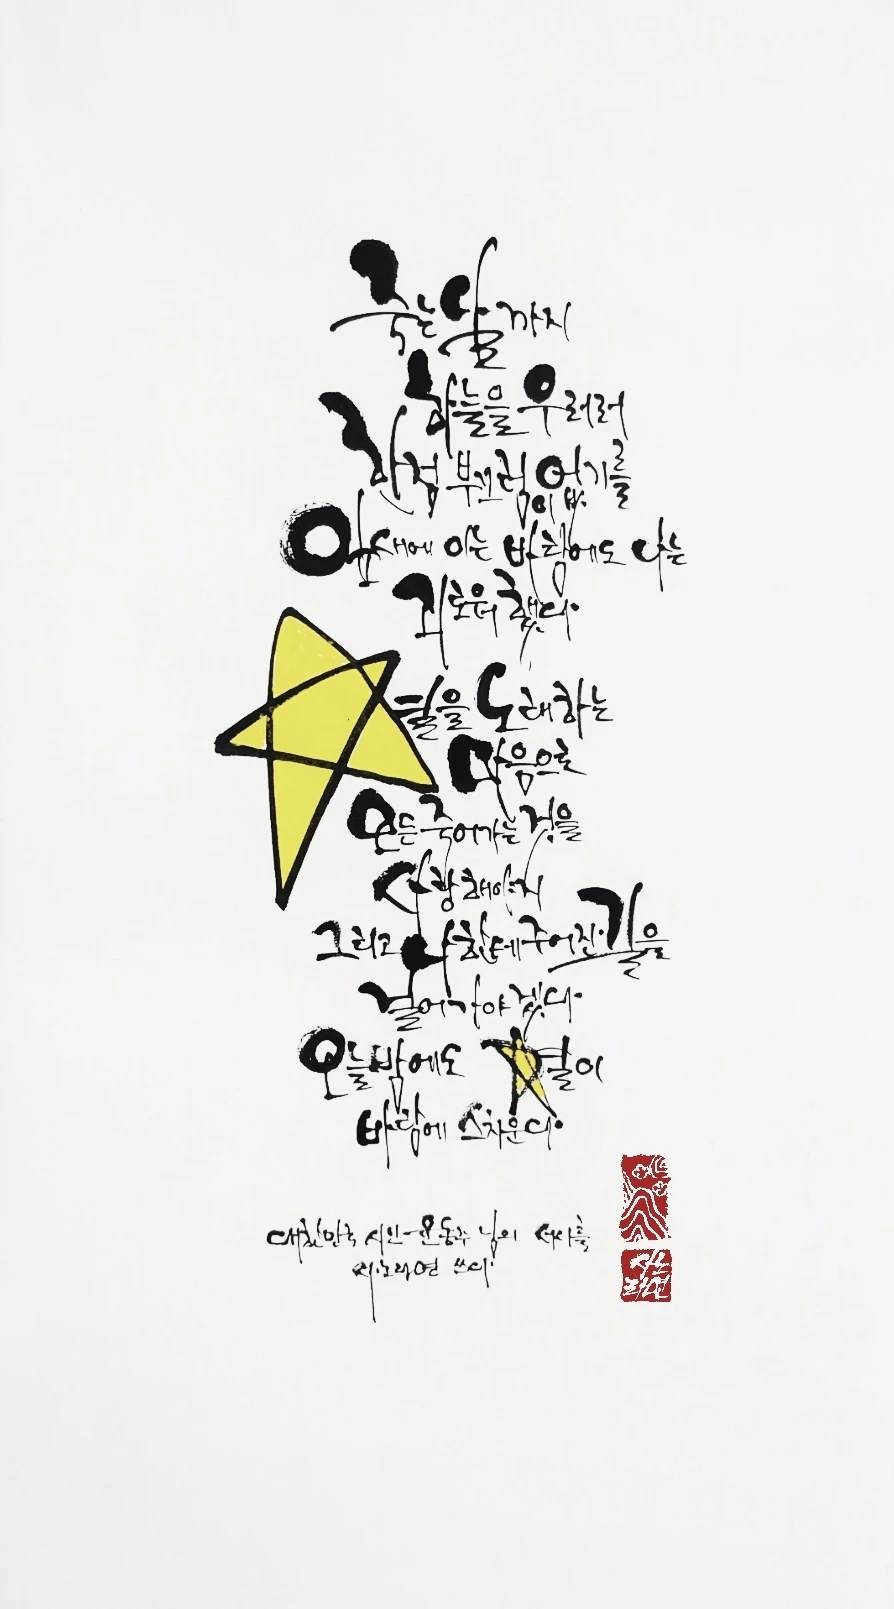 죽는 날까지
하늘을 우러러
한점 부끄럼이 없기를
잎새에 이는 바람에도 나는
괴로워했다.
별을 노래하는
마음으로
모든 죽어가는 것을
사랑해야지
그리고 나한테 주어진 길을
걸어가야겠다.
오늘밤에도 별이
바람에 스치운다.
대한민국 시인 윤동주 님의 서시를
쓰다.